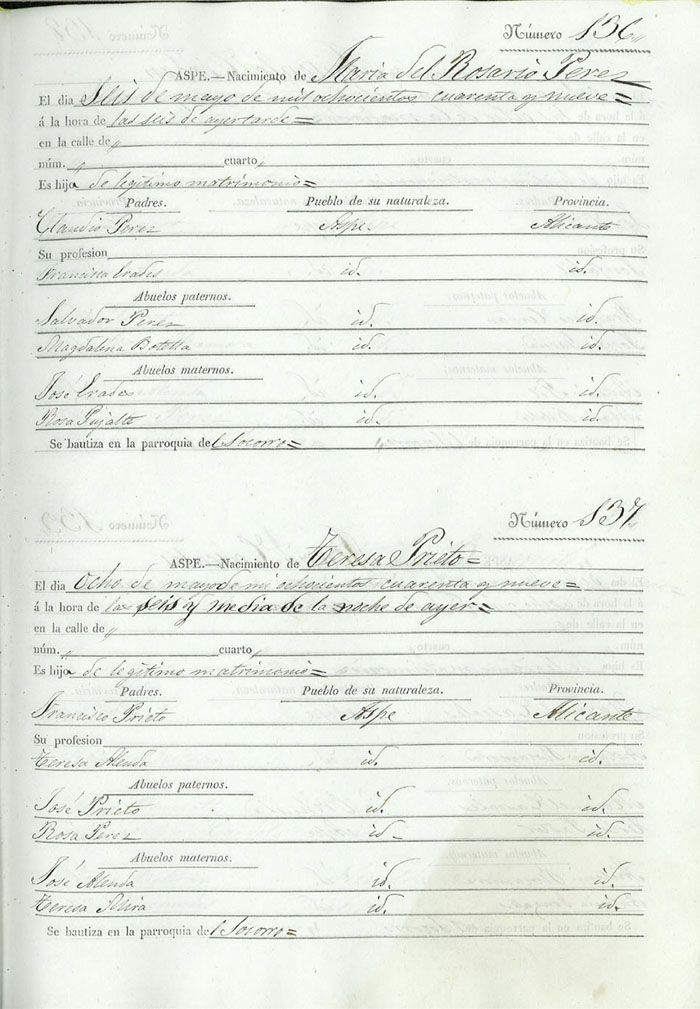 Número 136„
ASPE.—Nacimiento de Maria del Rosario Perez
El dia Seis de mayo de mil ochocientos cuarenta y nueve=
á la hora de las seis de ayer tarde=
en la calle de „
núm. „ cuarto „
Es hija de legitimo matrimonio=
Padres. Pueblo de su naturaleza. Provincia.
Claudio Perez Aspe. Alicante
Su profesion
Francisca Erades id. id.
Abuelos paternos.
Salvador Perez id. id.
Magdalena Botella id. id.
Abuelos maternos.
José Erades id. id.
Rosa Pujalte id. id.
Se bautiza en la parroquia del Socorro=
Número 137„
ASPE.—Nacimiento de Teresa Prieto=
El dia ocho de mayo de mi ochocientos cuarenta y nueve=
á la hora de las seis y media de la noche de ayer=
en la calle de „
núm. „ cuarto „
Es hija de legitimo matrimonio=
Padres. Pueblo de su naturaleza. Provincia.
Francisco Prieto Aspe Alicante
Su profesion
Teresa Alenda id. id.
Abuelos paternos.
José Prieto id. id.
Rosa Perez id. id.
Abuelos maternos.
José Alenda id. id.
Teresa id. id.
Se bautiza en la parroquia del Socorro=